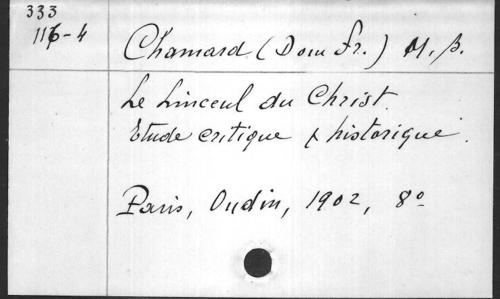 333
116-4
Chamard (Dom Fr.) M. B.
Le Linceul du Christ.
Etude critique & historique.
Paris, Oudin, 1902, 8º